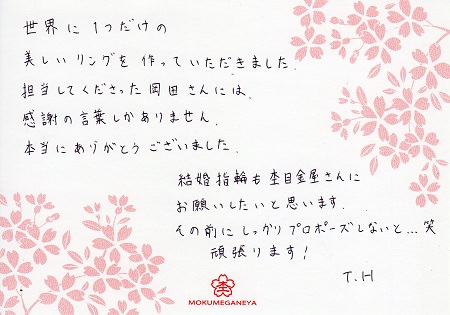 世界に1つだけの
美しいリングを作っていただきました.
担当してくださった岡田さんには、
感謝の言葉しかありません.
本当にありがとうございました.
結婚指輪も杢目金屋さんに
お願いしたいと思います.
その前にしっかりプロポーズしないと…笑
頑張ります!
T.H
杢
MOKUMEGANEYA